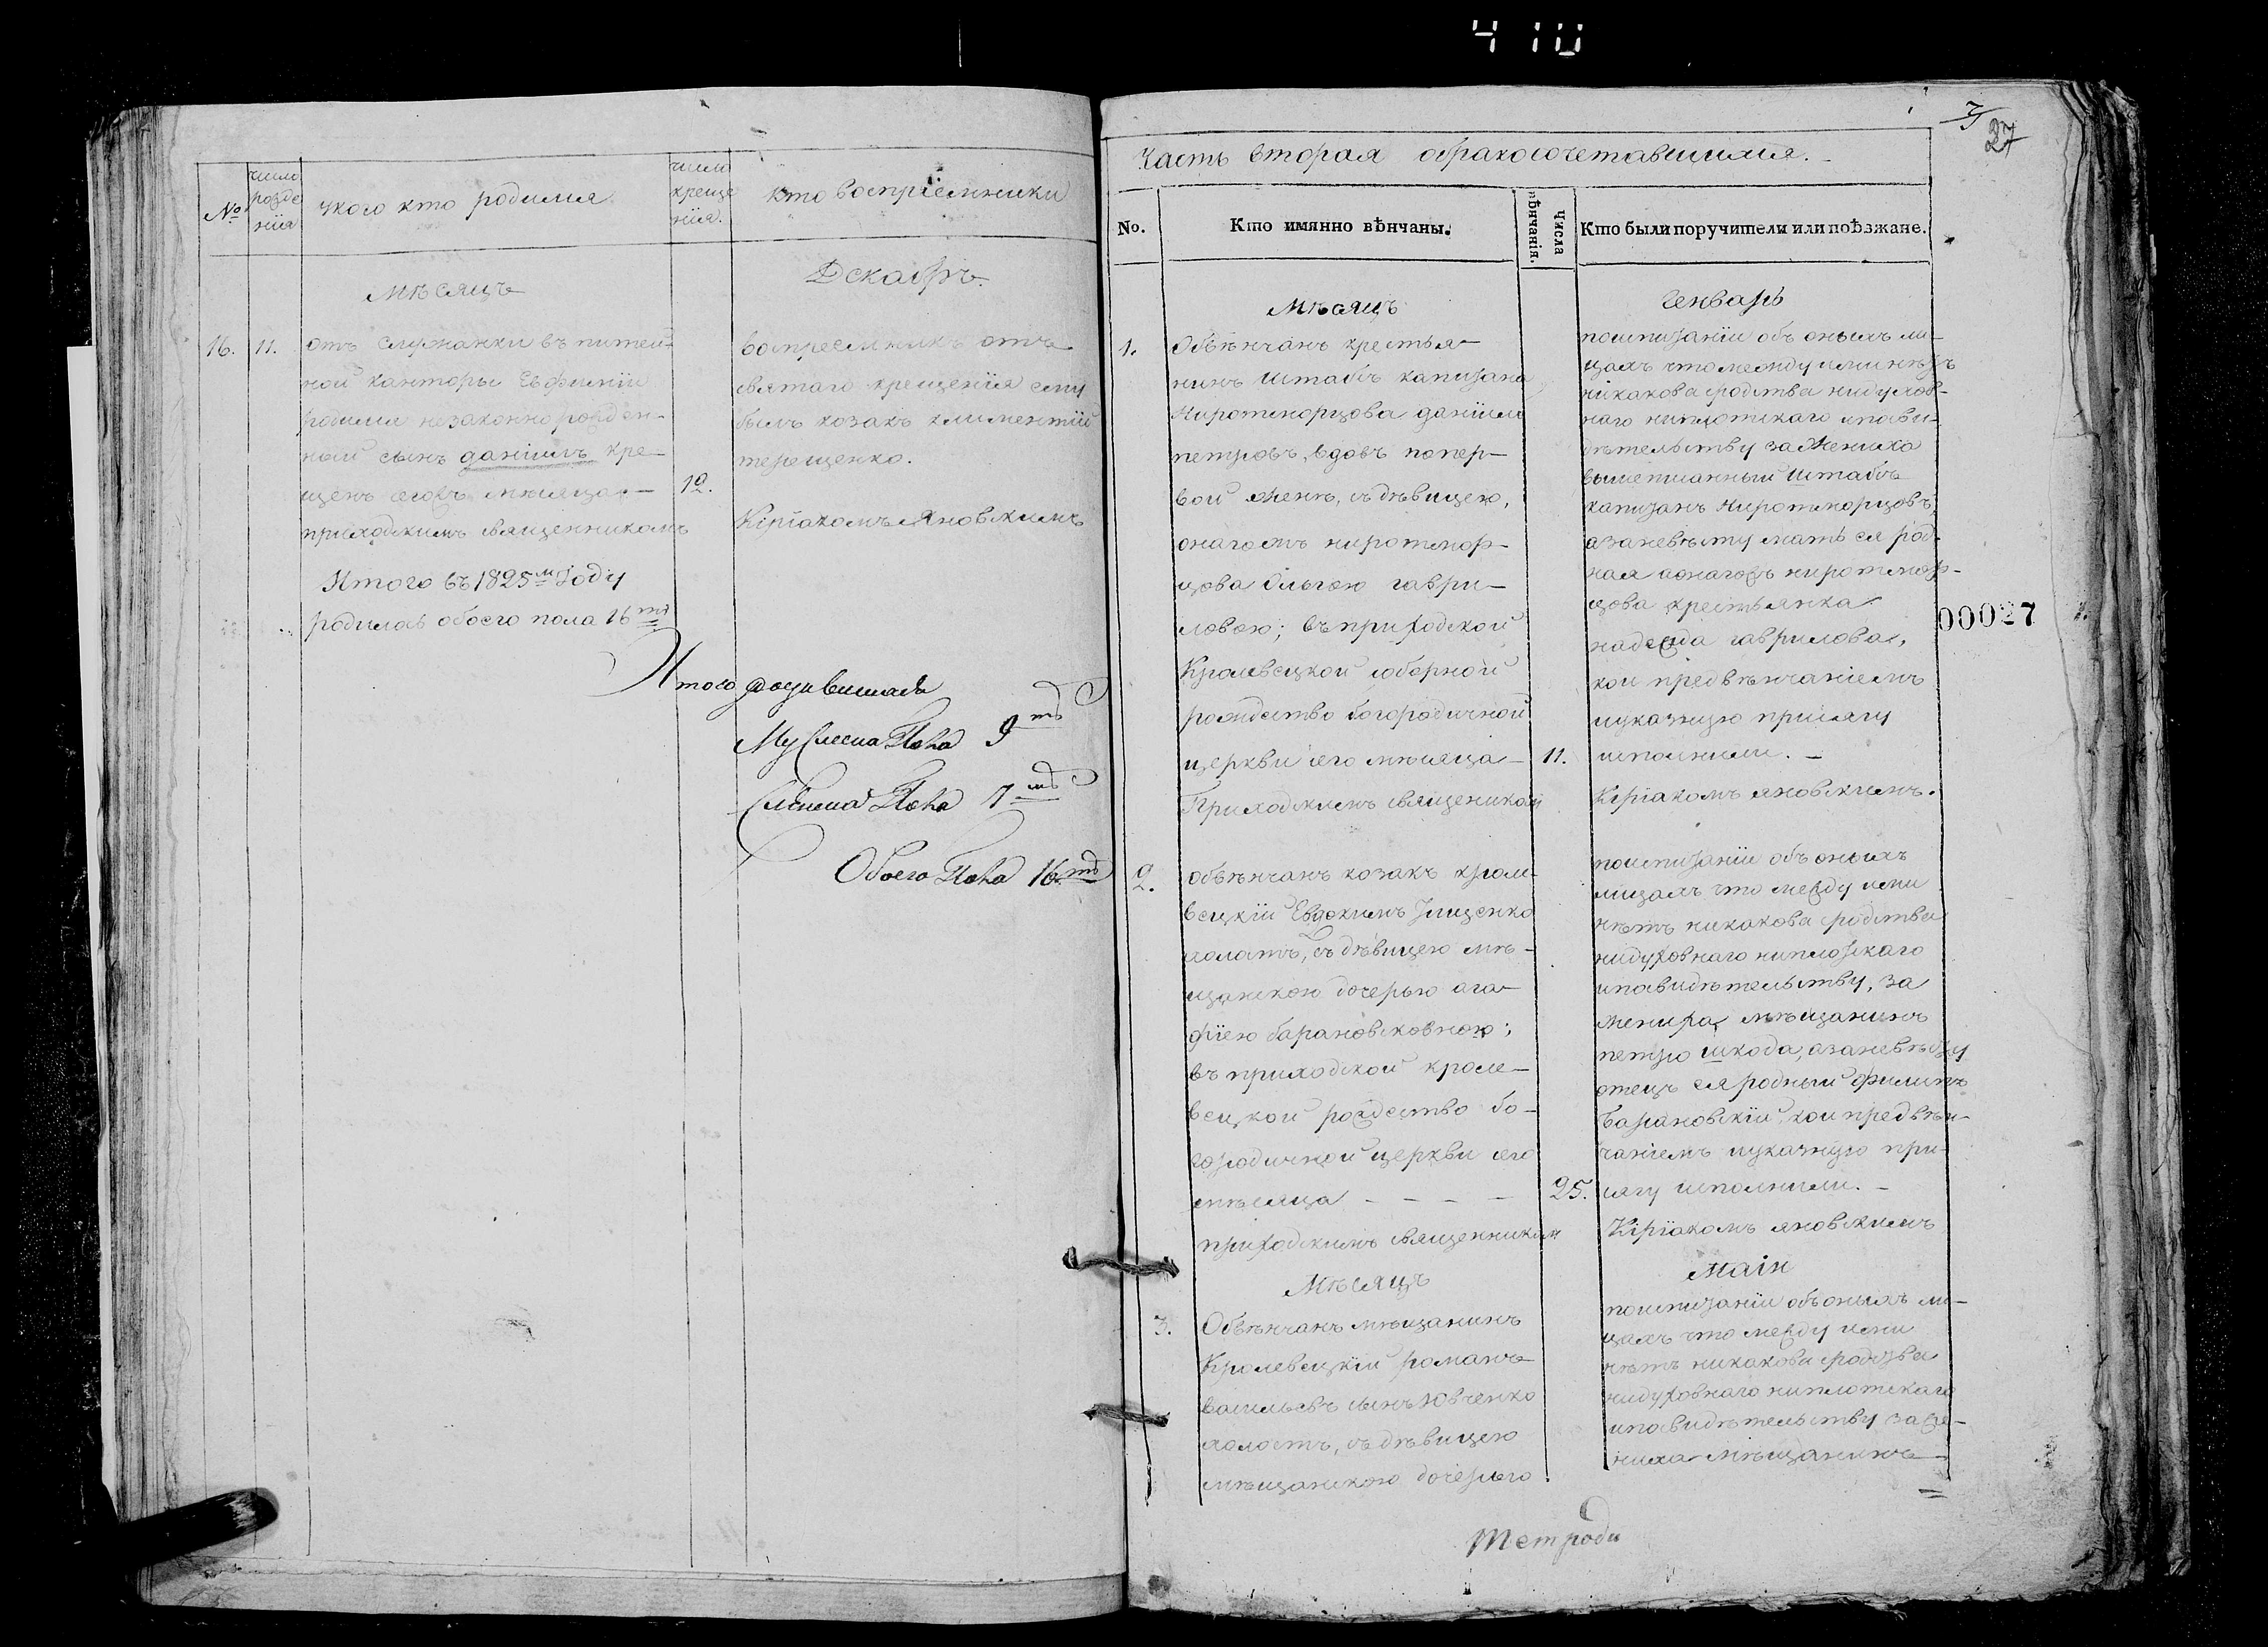 410
№
число рожде нія
укого кто родился
число креще нія.
кто воспріемники
мѣсяцъ
Декабрь.
16.
11.
отъ служанки въ питей-
ной канторы Евфиміи
родился незаконнорожден-
ный сынъ даніилъ кре-
щенъ сегожъ мѣсяца
12.
приходскимъ священникомъ
воспреемникъ отъ
святаго крещенія ему
былъ козакъ климентій
терещенко.
Кіріакомъ Яновскимъ
Итого въ 1825м году
родилось обоего пола 16тъ
Итого родившихся
Мужеска Пола 9тъ
Женска Пола 7мъ
Обоего Пола 16.тъ
27
Часть вторая обракосочетавшихся.
No.
Кто имянно вѣнчаны.
Числа вѣнчанія.
Кто были поручители или поѣзжане.
мѣсяцъ
Генварь
1.
Обвѣнчанъ крестья-
нинъ Штабъ капитана
Миротморцова даніилъ
петровъ, вдовъ попер-
вой женѣ, съ дѣвицею,
онагожъ миротмор-
цова Ольгою гаври-
ловою; въ приходской
Кролевецкой соборной
рождество богородичной
церкви сего мѣсяца
Приходскимъ священикомъ
11.
поисписаніи объ оныхъ ли-
цахъ что между ими нѣтъ
никакова сродства нидухов-
наго ниплотскаго иповы-
дѣтельству за Жениха
вышеписанный Штабъ
капитанъ Миротморцовъ,
азаневѣсту мать ея род-
ная аонагожъ миротмор-
цова крестьянка
надежда гаврилова,
кои предвѣнчаніемъ
иуказную присягу
исполнили.
Кіріакомъ яновскимъ.
2.
обвѣнчанъ козакъ кроле-
вецкій Евдокимъ Ищенко
холостъ, съ дѣвицею мѣ-
щанскою дочерью ага-
фіею барановсковною;
въ приходской кроле-
вецкой рождество бо-
городичной церкви сего
мѣсяца - - - -
приходскимъ священникомъ
25.
поисписаніи объ оныхъ
лицахъ что между ими
нѣтъ никакова сродства
нидуховнаго ниплотскаго
иповидѣтельству, за
жениха, мѣщанинъ
петро шкода, азаневѣсту
отецъ ея родный филипъ
Барановскій, кои предвѣн-
чаніемъ иуказную при-
сягу исполнили.
Кіріакомъ яновскимъ
Мѣсяцъ
Маія
3.
Обвѣнчанъ мѣщанинъ
Кролевецкій романъ
васильевъ сынъ Ювченко
холостъ, съ дѣвицею
мѣщанскою дочерью
поисписаніи объ оныхъ ли-
цахъ что между ими
нѣтъ никакова сродства
нидуховнаго ниплотскаго
иповидѣтельству за же-
ниха мѣщанинъ
00027